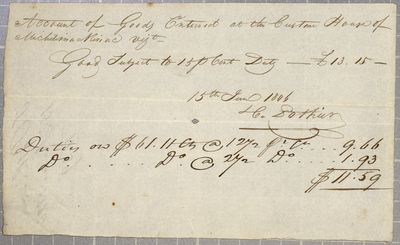 Account of Goods Entered at the Custom House of
Michilimackinac vizt
Goods Subject to 15 p Cent Duty — £13.15 —
15th June 1806
Duties on $61.11 Cts @ 12½ p. Ct. ... 9.66
Do. ... Do @ 2½ Do. .... 1.93
$11.59